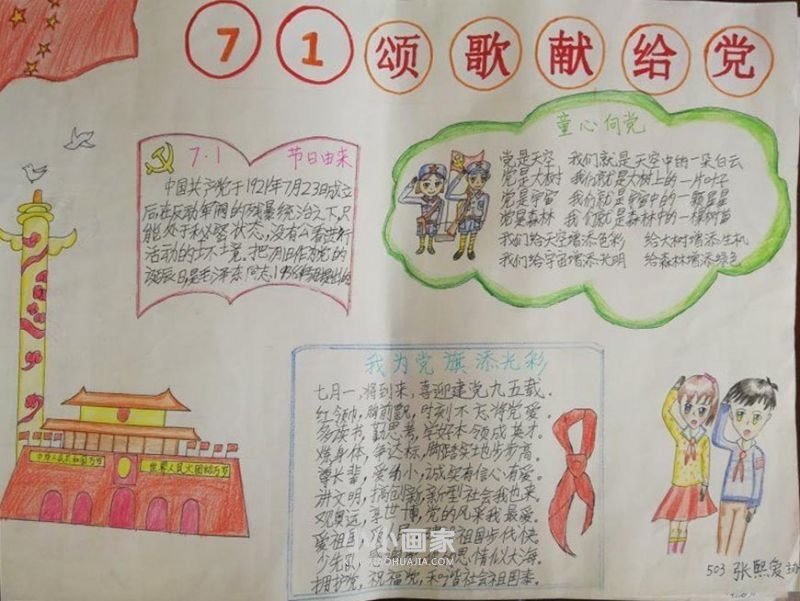 71颂歌献给党
7.1 节日由来
中国共产党于1921年7月23日成立
后在反动军阀的残暴统治之下,只
能处于秘密状态,没有公开进行
活动的环境。把7月1日作为党的
诞辰日,是毛泽东同志1938年提出的
童心向党
党是天空 我们就是天空中的一朵白云
党是大树 我们就是大树上的一片叶子
党是宇宙 我们就是宇宙中的一颗星星
党是森林 我们就是森林中的一棵树苗
我们给天空增添色彩 给大树增添生机
我们给宇宙增添光明 给森林增添绿色
我为党旗添光彩
七月一,将到来,喜迎建党九五载。
红领巾,胸前飘,时刻不忘将党爱。
多读书,勤思考,学好本领成英才。
增身体,争达标,脚踏实地步步高。
尊长辈,爱幼小,诚实有信心有爱。
讲文明,搞创新,新型社会我也来。
观奥运,享世博,党的风采我最爱。
爱祖国 祖国步伐快
少先队 恩情似大海
拥护党,祝福党,和谐社会祖国泰。
中华人民共和国万岁
世界人民大团结万岁
小小画家
503 张熙爱